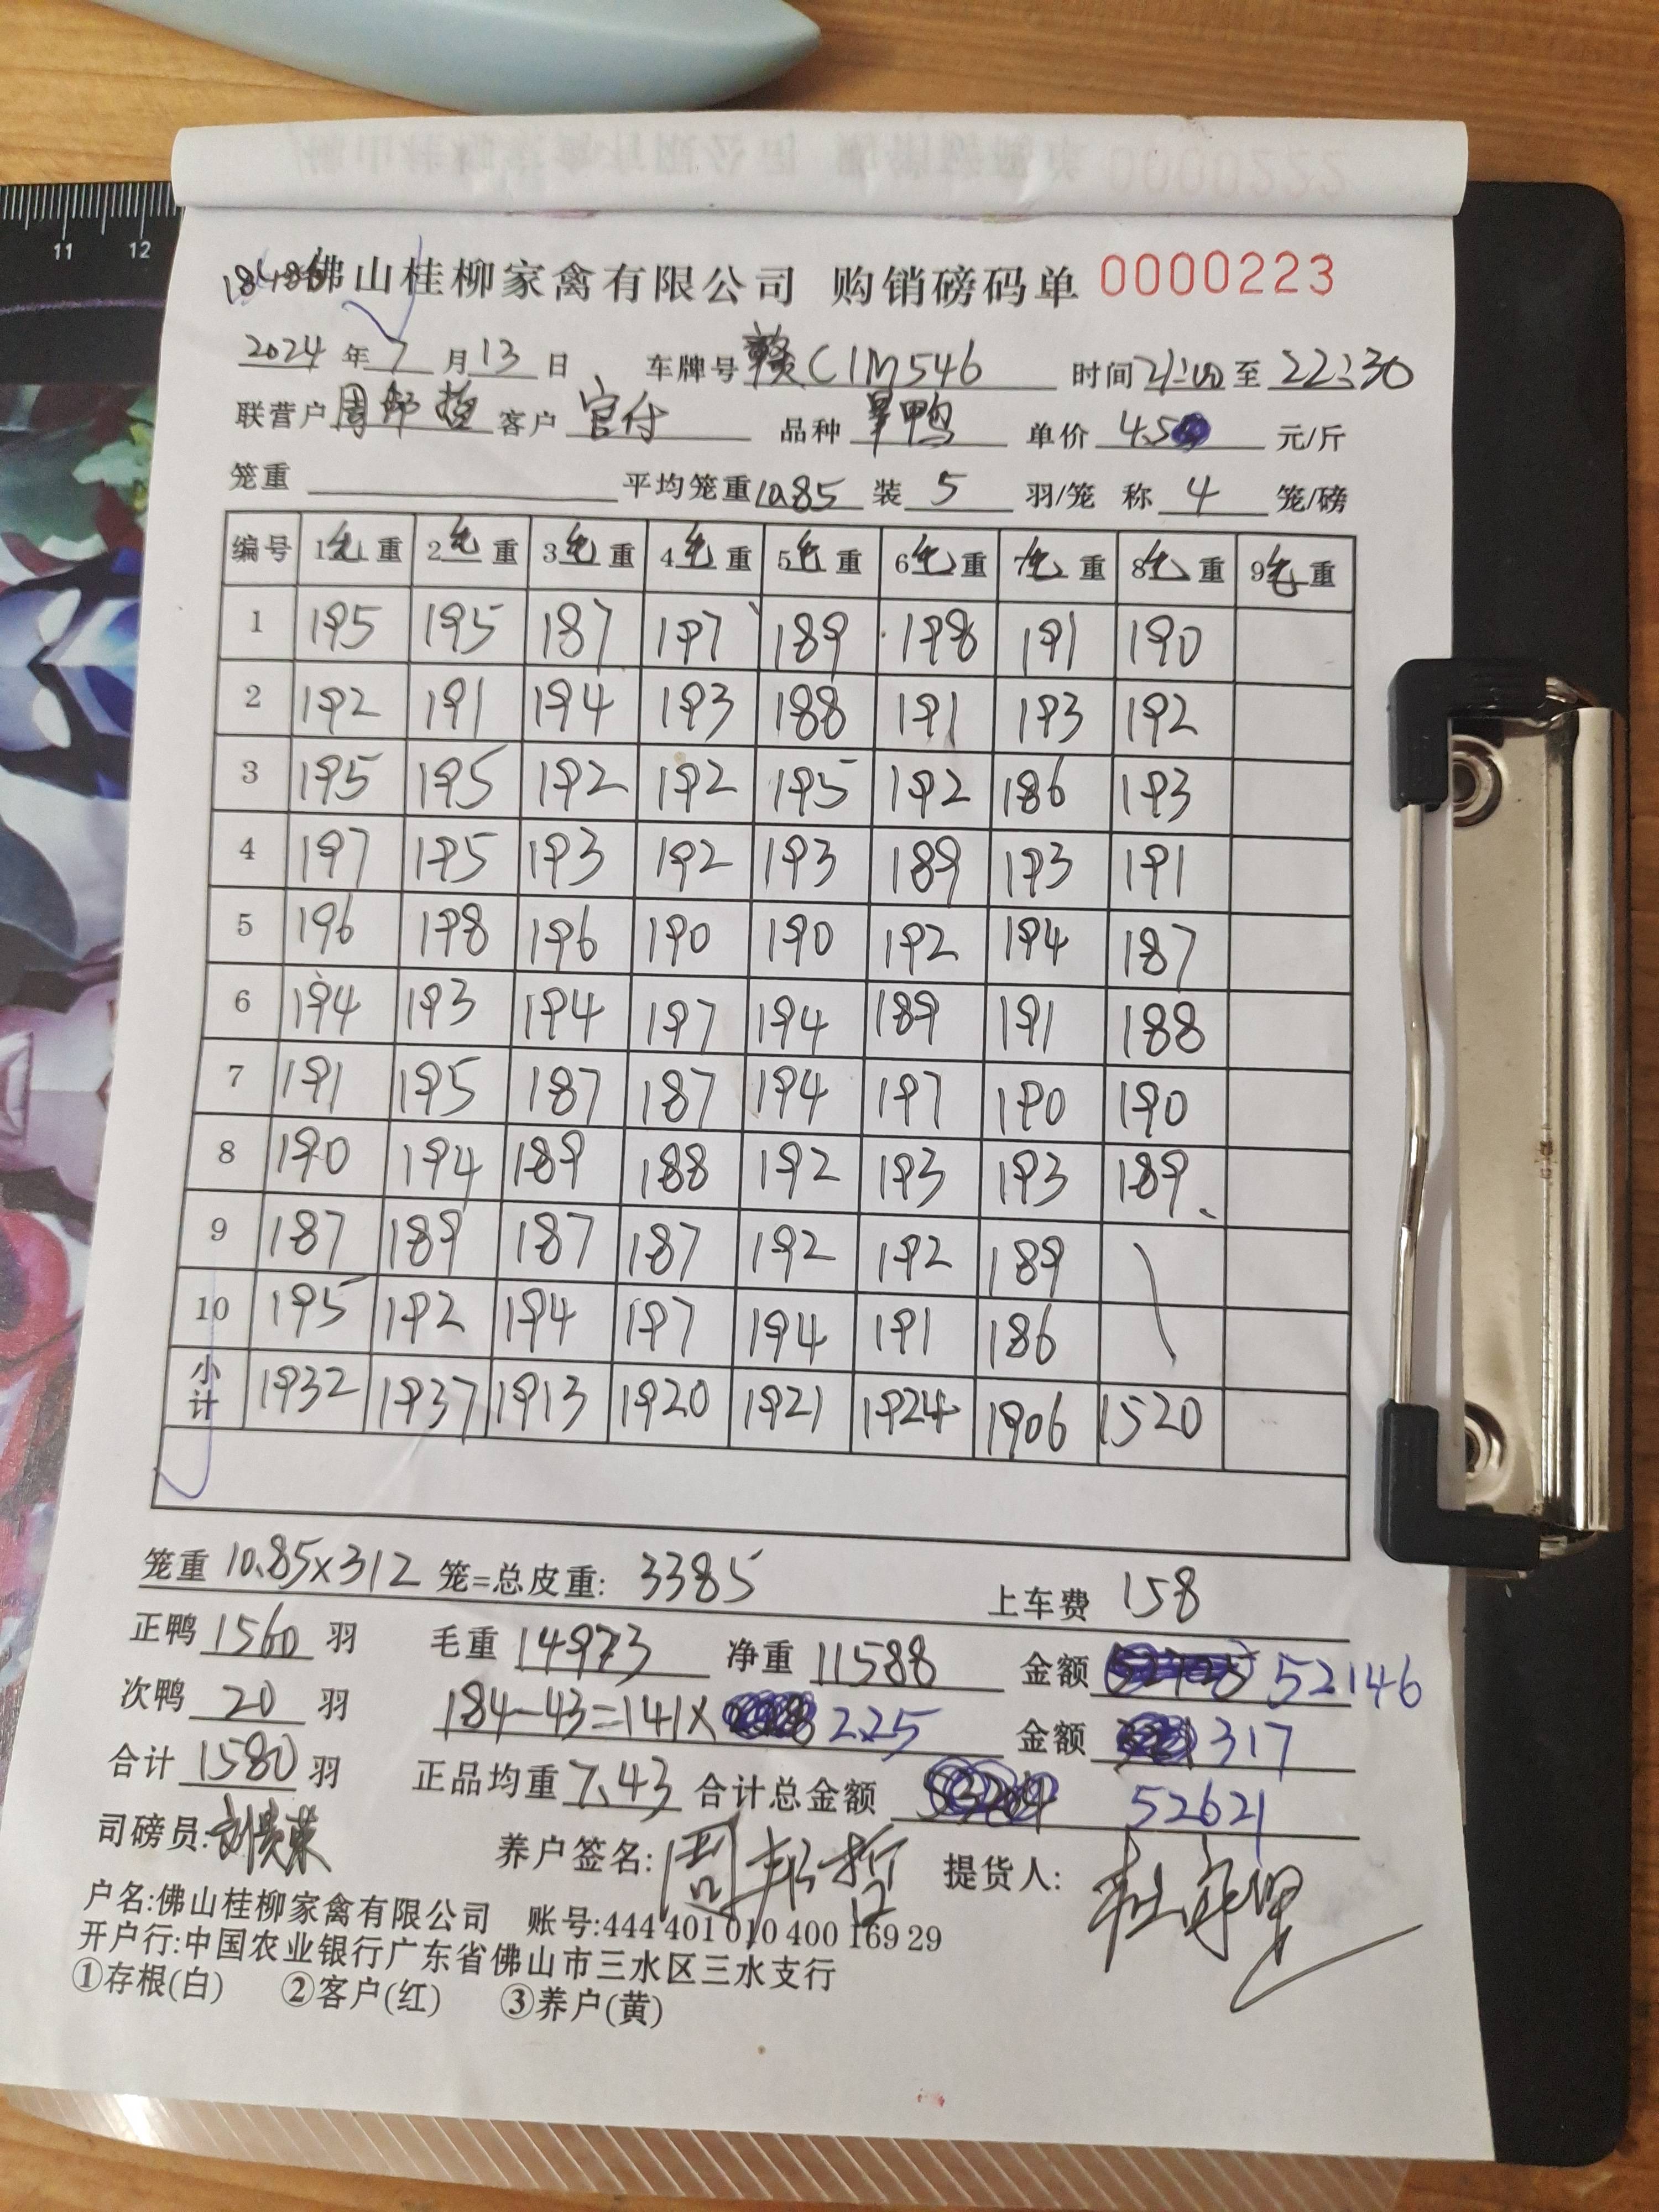 11 12
佛山桂柳家禽有限公司 购销磅码单 0000223
2024年7月13日 车牌号 赣C1M546 时间 21:00 至 22:30
联营户 周邦哲 客户 官付 品种 旱鸭 单价 4.5 元/斤
笼重 平均笼重 10.85 装 5 羽/笼 称 4 笼/磅
编号 1毛重 2毛重 3毛重 4毛重 5毛重 6毛重 7毛重 8毛重 9毛重
1 195 195 187 197 189 198 191 190
2 192 191 194 193 188 191 193 192
3 195 195 192 192 195 192 186 193
4 197 195 193 192 193 189 193 191
5 196 198 196 190 190 192 194 187
6 194 193 194 197 194 189 191 188
7 191 195 187 187 194 197 190 190
8 190 194 189 188 192 193 193 189
9 187 189 187 187 192 192 189
10 195 192 194 197 194 191 186
小计 1932 1937 1913 1920 1921 1924 1906 1520
笼重 10.85×312 笼=总皮重: 3385 上车费 158
正鸭 1560 羽 毛重 14973 净重 11588 金额 52146
次鸭 20 羽 184-43=141× 2.25 金额 317
合计 1580 羽 正品均重 7.43 合计总金额 52621
司磅员: 养户签名: 周邦哲 提货人:
户名:佛山桂柳家禽有限公司 账号:444 401 010 400 169 29
开户行:中国农业银行广东省佛山市三水区三水支行
①存根(白) ②客户(红) ③养户(黄)